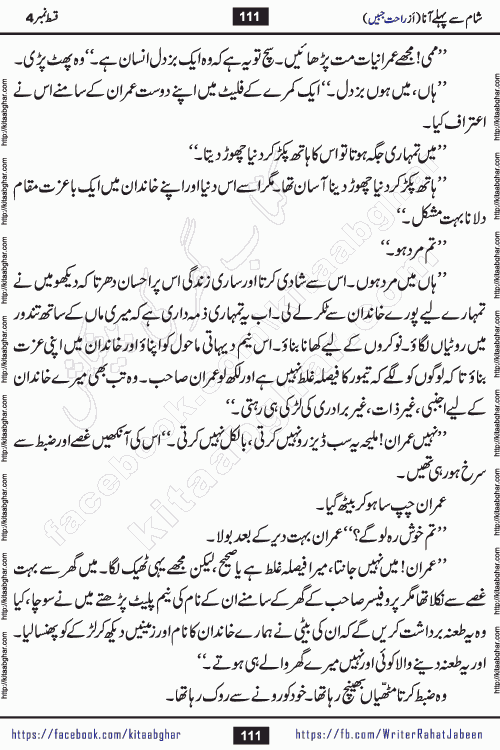 شام سے پہلے آنا (از راحت جبیں)
111
قسط نمبر 4
’’ممی! مجھے عمرانیات مت پڑھائیں۔ سچ تو یہ ہے کہ وہ ایک بزدل انسان ہے۔‘‘ وہ پھٹ پڑی۔
’’ہاں، میں ہوں بزدل۔‘‘ ایک کمرے کے فلیٹ میں اپنے دوست عمران کے سامنے اس نے
اعتراف کیا۔
’’میں تمہاری جگہ ہوتا تو اس کا ہاتھ پکڑ کر دنیا چھوڑ دیتا۔‘‘
’’ہاتھ پکڑ کر دنیا چھوڑ دینا آسان تھا۔ مگر اسے اس دنیا اور اپنے خاندان میں ایک باعزت مقام
دلانا بہت مشکل۔‘‘
’’تم مرد ہو۔‘‘
’’ہاں میں مرد ہوں۔ اس سے شادی کرتا اور ساری زندگی اس پر احسان دھرتا کہ دیکھو میں نے
تمہارے لیے پورے خاندان سے ٹکر لے لی۔ اب یہ تمہاری ذمہ داری ہے کہ میری ماں کے ساتھ تندور
میں روٹیاں لگاؤ۔ نوکروں کے لیے کھانا بناؤ۔ اس نیم دیہاتی ماحول کو اپناؤ اور خاندان میں اپنی عزت
بناؤ تا کہ لوگوں کو لگے کہ تیمور کا فیصلہ غلط نہیں ہے اور لکھ لو عمران صاحب۔ وہ تب بھی میرے خاندان
کے لیے اجنبی، غیر ذات، غیر برادری کی لڑکی ہی رہتی۔‘‘
’’نہیں عمران! ملیحہ یہ سب ڈیزرو نہیں کرتی، بالکل نہیں کرتی۔‘‘ اس کی آنکھیں غصے اور ضبط سے
سرخ ہو رہی تھیں۔
عمران چپ سا ہو کر بیٹھ گیا۔
’’تم خوش رہ لو گے؟‘‘ عمران بہت دیر کے بعد بولا۔
’’عمران! میں نہیں جانتا، میرا فیصلہ غلط ہے یا صحیح، لیکن مجھے یہی ٹھیک لگا۔ میں گھر سے بہت
غصے سے نکلا تھا مگر پروفیسر صاحب کے گھر کے سامنے ان کے نام کی نیم پلیٹ پڑھتے میں نے سوچا، کیا
وہ یہ طعنہ برداشت کریں گے کہ ان کی بیٹی نے ہمارے خاندان کا نام اور زمینیں دیکھ کر لڑکے کو پھنسا لیا۔
اور یہ طعنہ دینے والا کوئی اور نہیں میرے گھر والے ہی ہوتے۔‘‘
وہ ضبط کرتا مٹھیاں بھینچ رہا تھا۔ خود کو رونے سے روک رہا تھا۔
http://kitaabghar.com
کتاب گھر کی پیشکش
facebook.com/kitaabghar
kitaabghar.com
https://facebook.com/kitaabghar
111
https://fb.com/WriterRahatJabeen